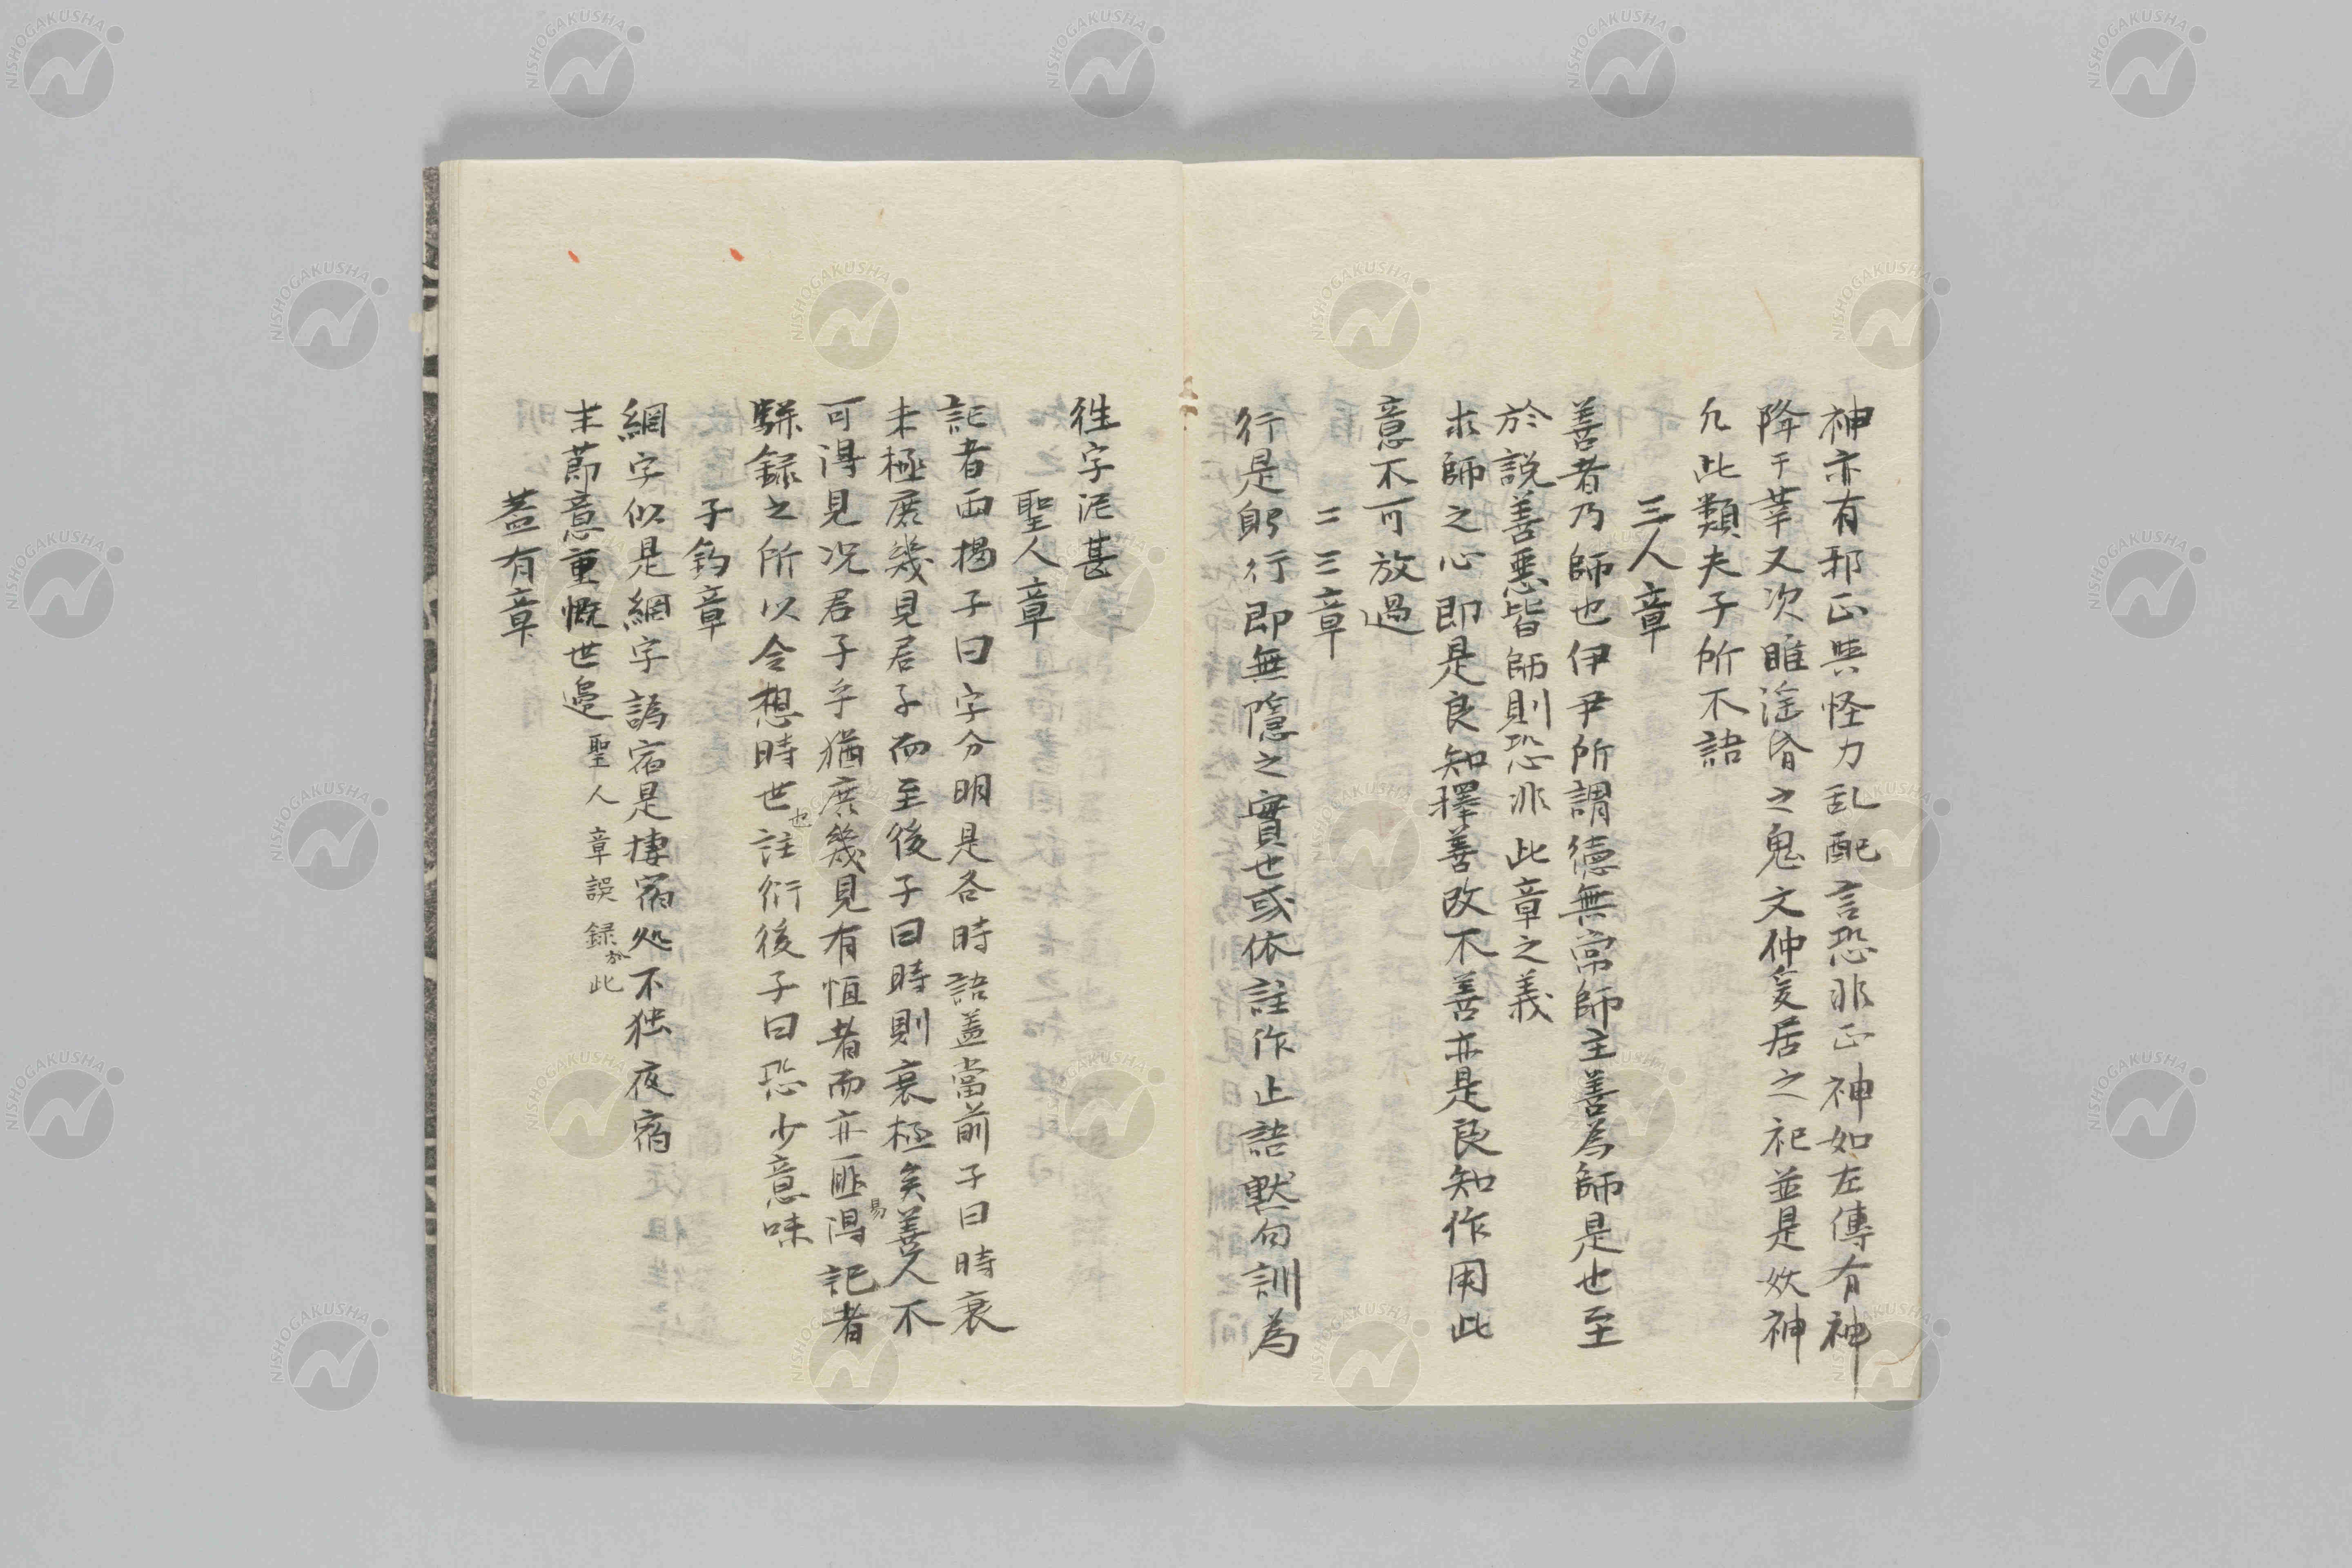 神亦有邪正與怪力乱配言恐非正神如左傳有神
降于莘又次睢淫昏之鬼文仲爰居之祀並是妖神
凡此類夫子所不語
三人章
善者乃師也伊尹所謂德無常師主善為師是也至
於説善惡皆師則恐非此章之義
求師之心即是良知擇善改不善亦是良知作用此
意不可放過
二三章
行是躬行即無隱之實也或依註作止語默句訓為
徃字泥甚
聖人章
記者両掲子曰字分明是各時語蓋當前子曰時衰
未極庶幾見君子而至後子曰時則衰極矣善人不
可得見况君子乎猶庶幾見有恒者而亦匪易得記者
駢録之所以令想時世也註衍後子曰恐少意味
子釣章
網字似是綱字譌宿是棲宿処不独夜宿
末節意重慨世邉聖人章誤録於此
蓋有章
NISHOGAKUSHA